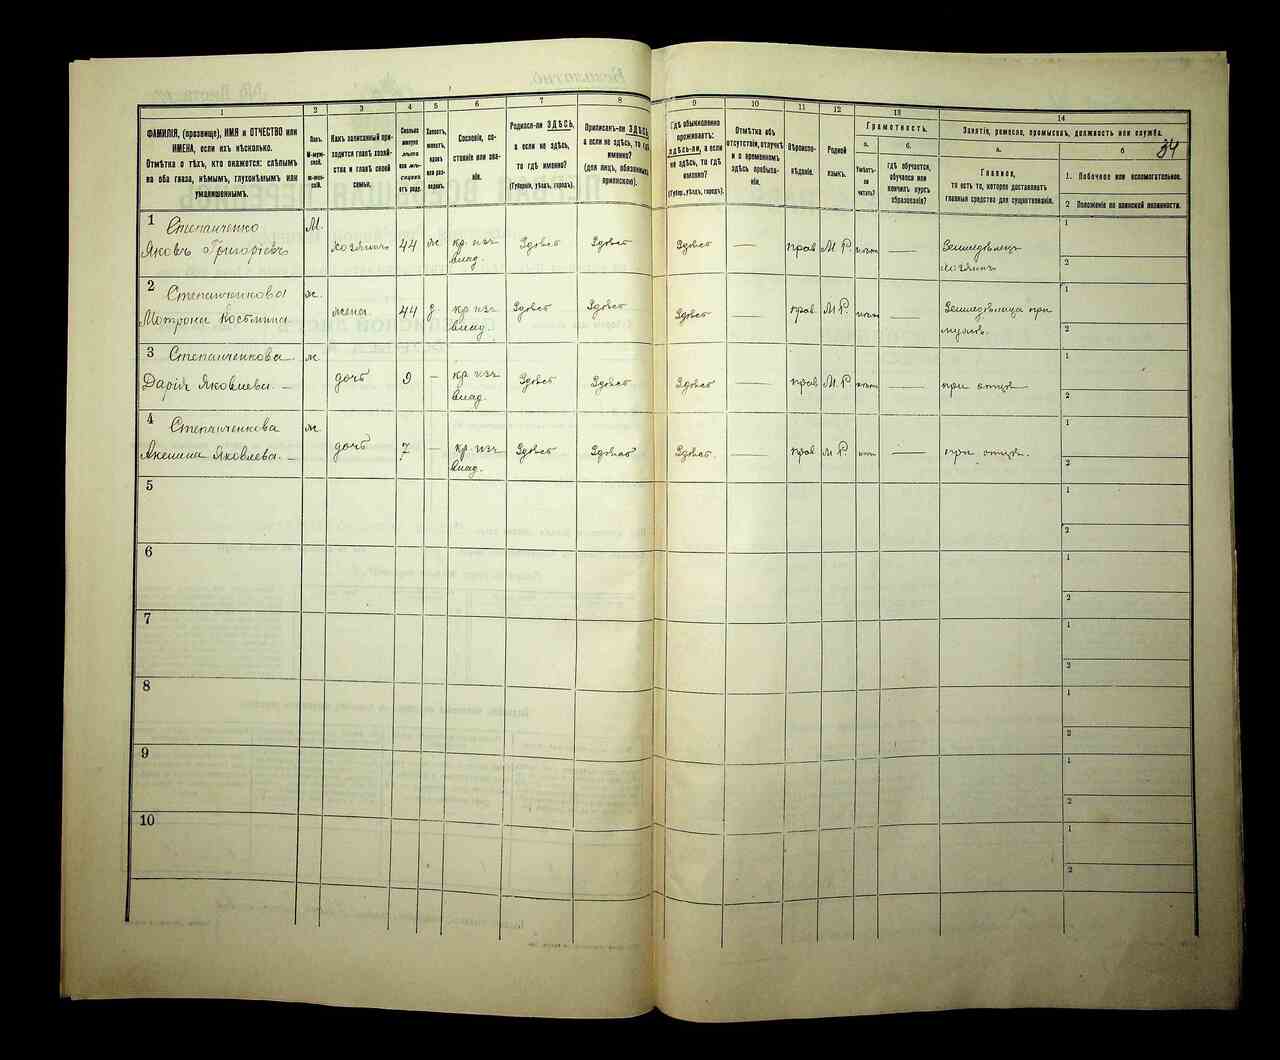 34
1
2
3
4
5
6
7
8
9
10
11
12
13
14
ФАМИЛІЯ, (прозвище), ИМЯ и ОТЧЕСТВО или
ИМЕНА, если ихъ нѣсколько.
Отмѣтка о тѣхъ, кто окажется: слѣпымъ
на оба глаза, нѣмымъ, глухонѣмымъ или
умалишеннымъ.
Полъ.
М-мужской.
Ж-женскій.
Какъ записанный при-
ходится главѣ хозяй-
ства и главѣ своей
семьи.
Сколько
минуло
лѣтъ
или мѣ-
сяцевъ
отъ роду.
Холостъ,
женатъ,
вдовъ
или раз-
веденъ.
Сословіе, со-
стояніе или зва-
ніе.
Родился-ли ЗДѢСЬ,
а если не здѣсь,
то гдѣ именно?
(Губернія, уѣздъ, городъ).
Приписанъ-ли ЗДѢСЬ,
а если не здѣсь, то гдѣ
именно?
(для лицъ, обязанныхъ
припискою).
Гдѣ обыкновенно
проживаетъ:
здѣсь-ли, а если
не здѣсь, то гдѣ
именно?
(Губерн., уѣздъ, городъ).
Отмѣтка объ
отсутствіи, отлучкѣ
и о временномъ
здѣсь пребыва-
ніи.
Вѣроиспо-
вѣданіе.
Родной
языкъ.
Грамотность.
а.
Умѣетъ-
ли
читать?
б.
гдѣ обучается,
обучался или
кончилъ курсъ
образованія?
Занятіе, ремесло, промыселъ, должность или служба.
а.
Главное,
то есть то, которое доставляетъ
главныя средства для существованія.
б
1. Побочное или вспомогательное.
2 Положеніе по воинской повинности.
1 Степанченко М.
Яковъ Григорьевъ хозяинъ 44 ж кр. изъ влад. Здѣсь Здѣсь Здѣсь — прав М. Р. Земледѣлецъ хозяинъ 1 2
2 Степанченкова ж.
Мотрона жена 44 з кр изъ влад. Здѣсь Здѣсь Здѣсь — прав. М Р. — Земледѣлица при мужѣ. 1 2
3 Степанченкова ж
Дарія Яковлева — дочь 9 — кр изъ влад. Здѣсь Здѣсь Здѣсь — прав М. Р — при отцѣ 1 2
4 Степанченкова ж.
Яковлева. — дочь 7 — кр. изъ влад. Здѣсь Здѣсь Здѣсь — прав М Р — при отцѣ. 1 2
5 1 2
6 1 2
7 1 2
8 1 2
9 1 2
10 1 2